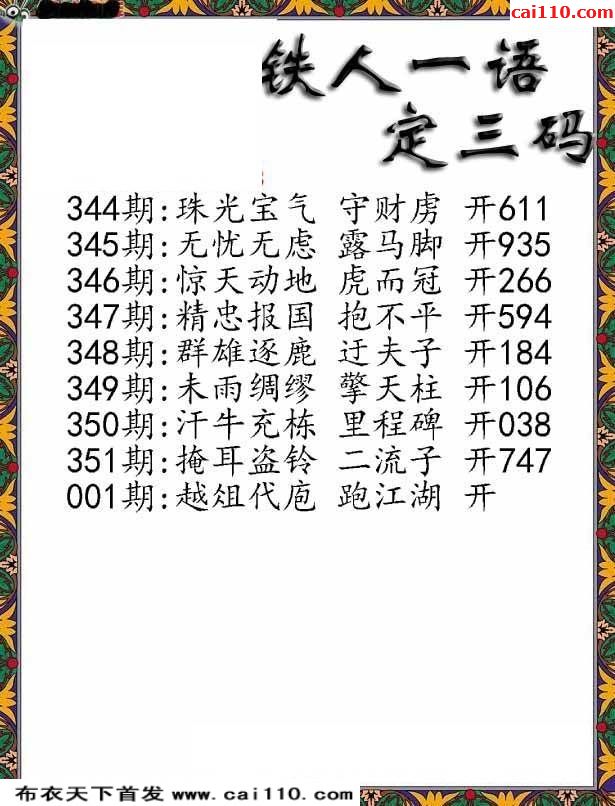 cai110.com
铁人一语
定三码
344期:珠光宝气 守财虏 开611
345期:无忧无虑 露马脚 开935
346期:惊天动地 虎而冠 开266
347期:精忠报国 抱不平 开594
348期:群雄逐鹿 迂夫子 开184
349期:未雨绸缪 擎天柱 开106
350期:汗牛充栋 里程碑 开038
351期:掩耳盗铃 二流子 开747
001期:越俎代庖 跑江湖 开
布衣天下首发 www.cai110.com